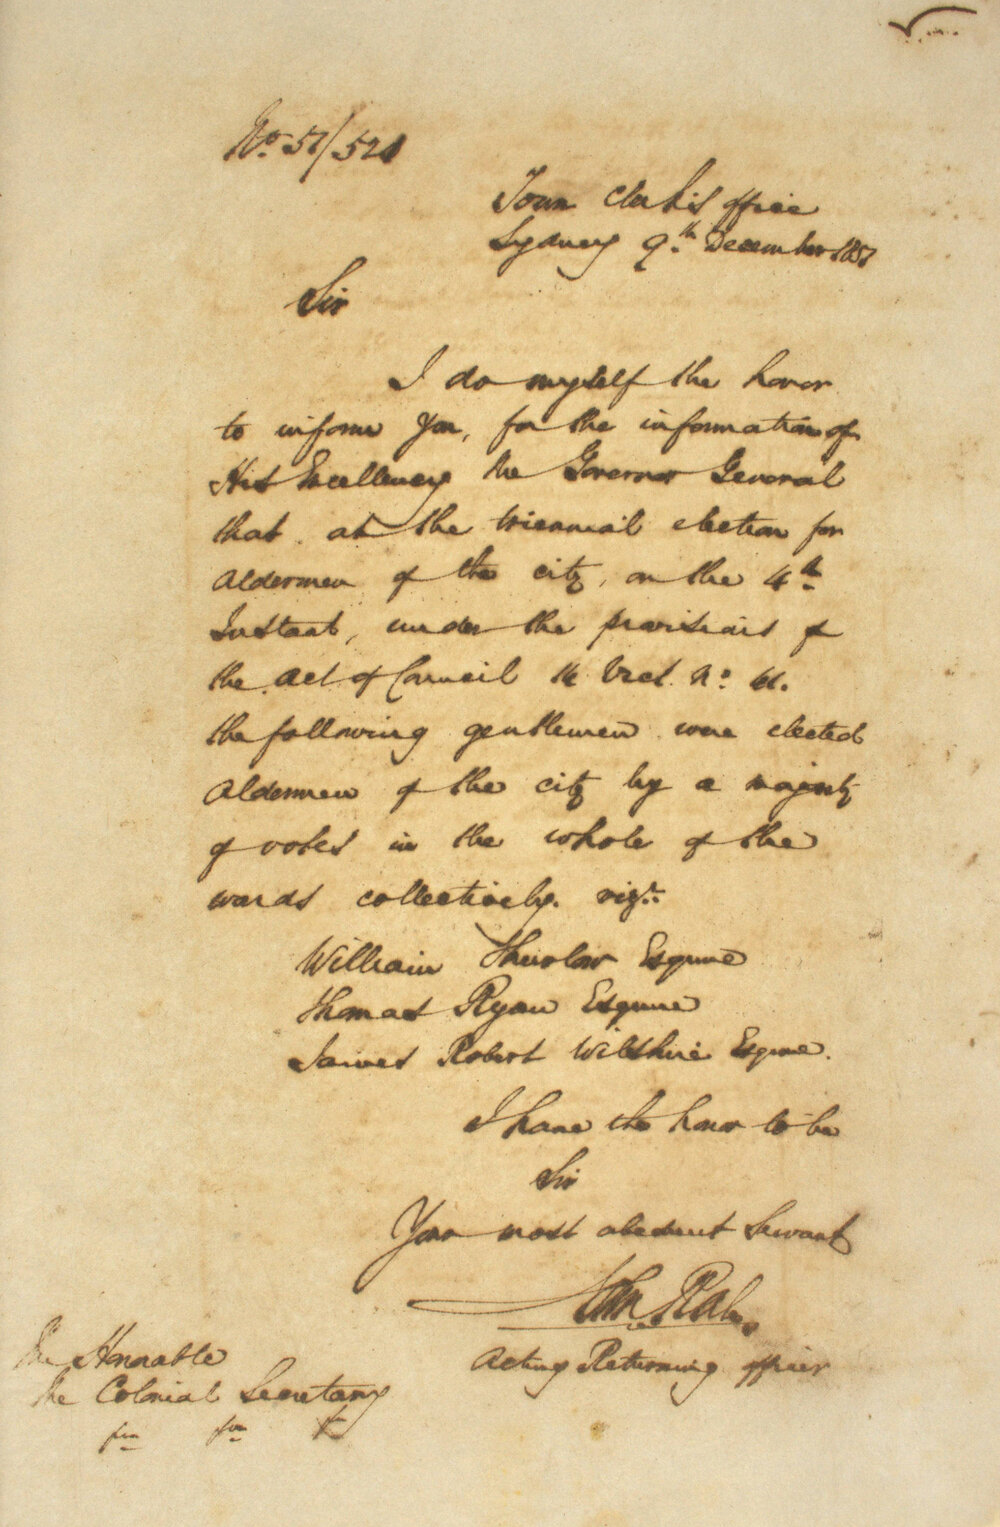 No. 51/521
Town Clerk's office
Sydney 9th December 1851
Sir
I do myself the honor
to inform you, for the information of
His Excellency the Governor General
that at the triennial election for
Aldermen of the city, on the 4th
Instant, under the provisions of
the Act of Council 14 Vict. No. 41.
the following gentlemen were elected
Aldermen of the city by a majority
of votes in the whole of the
wards collectively. vizt.
William Thurlow Esquire
Thomas Ryan Esquire
James Robert Wilshire Esquire.
I have the honor to be
Sir
Your most obedient Servant
John Rae
Acting Returning officer
The Honorable
the Colonial Secretary